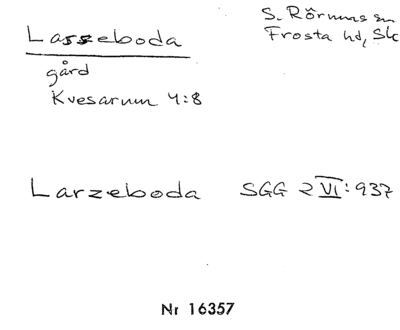 Lasseboda
S. Rörums sn
Frosta hd, Sk
gård
Kvesarum 4:8
Larzeboda SGG 2 VI: 937
Nr 16357